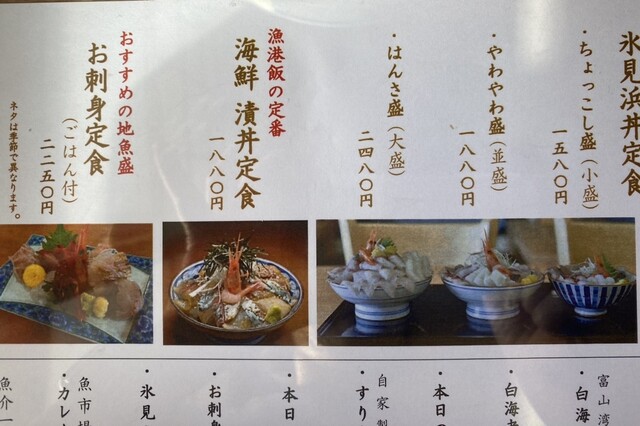 氷見浜丼定食
・ちょっこし盛(小盛)
一五八〇円
・やわやわ盛(並盛)
一八八〇円
・はんさ盛(大盛)
二四八〇円
漁港飯の定番
海鮮漬丼定食
一八八〇円
おすすめの地魚盛
お刺身定食
(ごはん付)
二二五〇円
ネタは季節で異なります。
富山湾
・白海
・白海老
・本日の
自家製
・すり
・本日
・お刺身
・氷見
魚市場
・カレ
魚介一